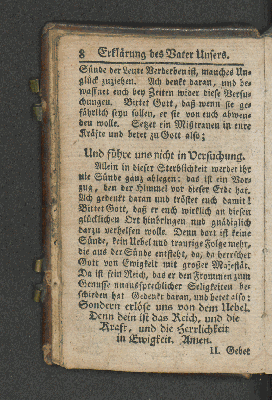 8 Erklärung des Vater Unsers.
Sünde der Leute Verderben ist, manches Un=
glück zuziehen. Ach denkt daran, und be=
waffnet euch bey Zeiten wider diese Versu=
chungen. Bittet Gott, daß wenn sie ge=
fährlich seyn sollen, er sie von euch abwen=
den wolle. Setzet ein Mißtrauen in eure
Kräfte und betet zu Gott also:
Und führe uns nicht in Versuchung.
Allein in dieser Sterblichkeit werdet ihr
die Sünde ganz ablegen: das ist ein Vor=
zug, den der Himmel vor dieser Erde hat.
Ach gedenkt daran und tröstet euch damit!
Bittet Gott, daß er euch wirklich an diesen
glücklichen Ort hinbringen und gnädiglich
darzu verhelfen wolle. Denn dort ist keine
Sünde, kein Uebel und traurige Folge mehr,
die aus der Sünde entsteht, da, da herrschet
Gott von Ewigkeit mit großer Majestät.
Da ist sein Reich, das er den Frommen zum
Genusse unaussprechlicher Seligkeiten be=
schieden hat Gedenkt daran, und betet also:
Sondern erlöse uns von dem Uebel.
Denn dein ist das Reich, und die
Kraft, und die Herrlichkeit
in Ewigkeit. Amen.
II. Gebet